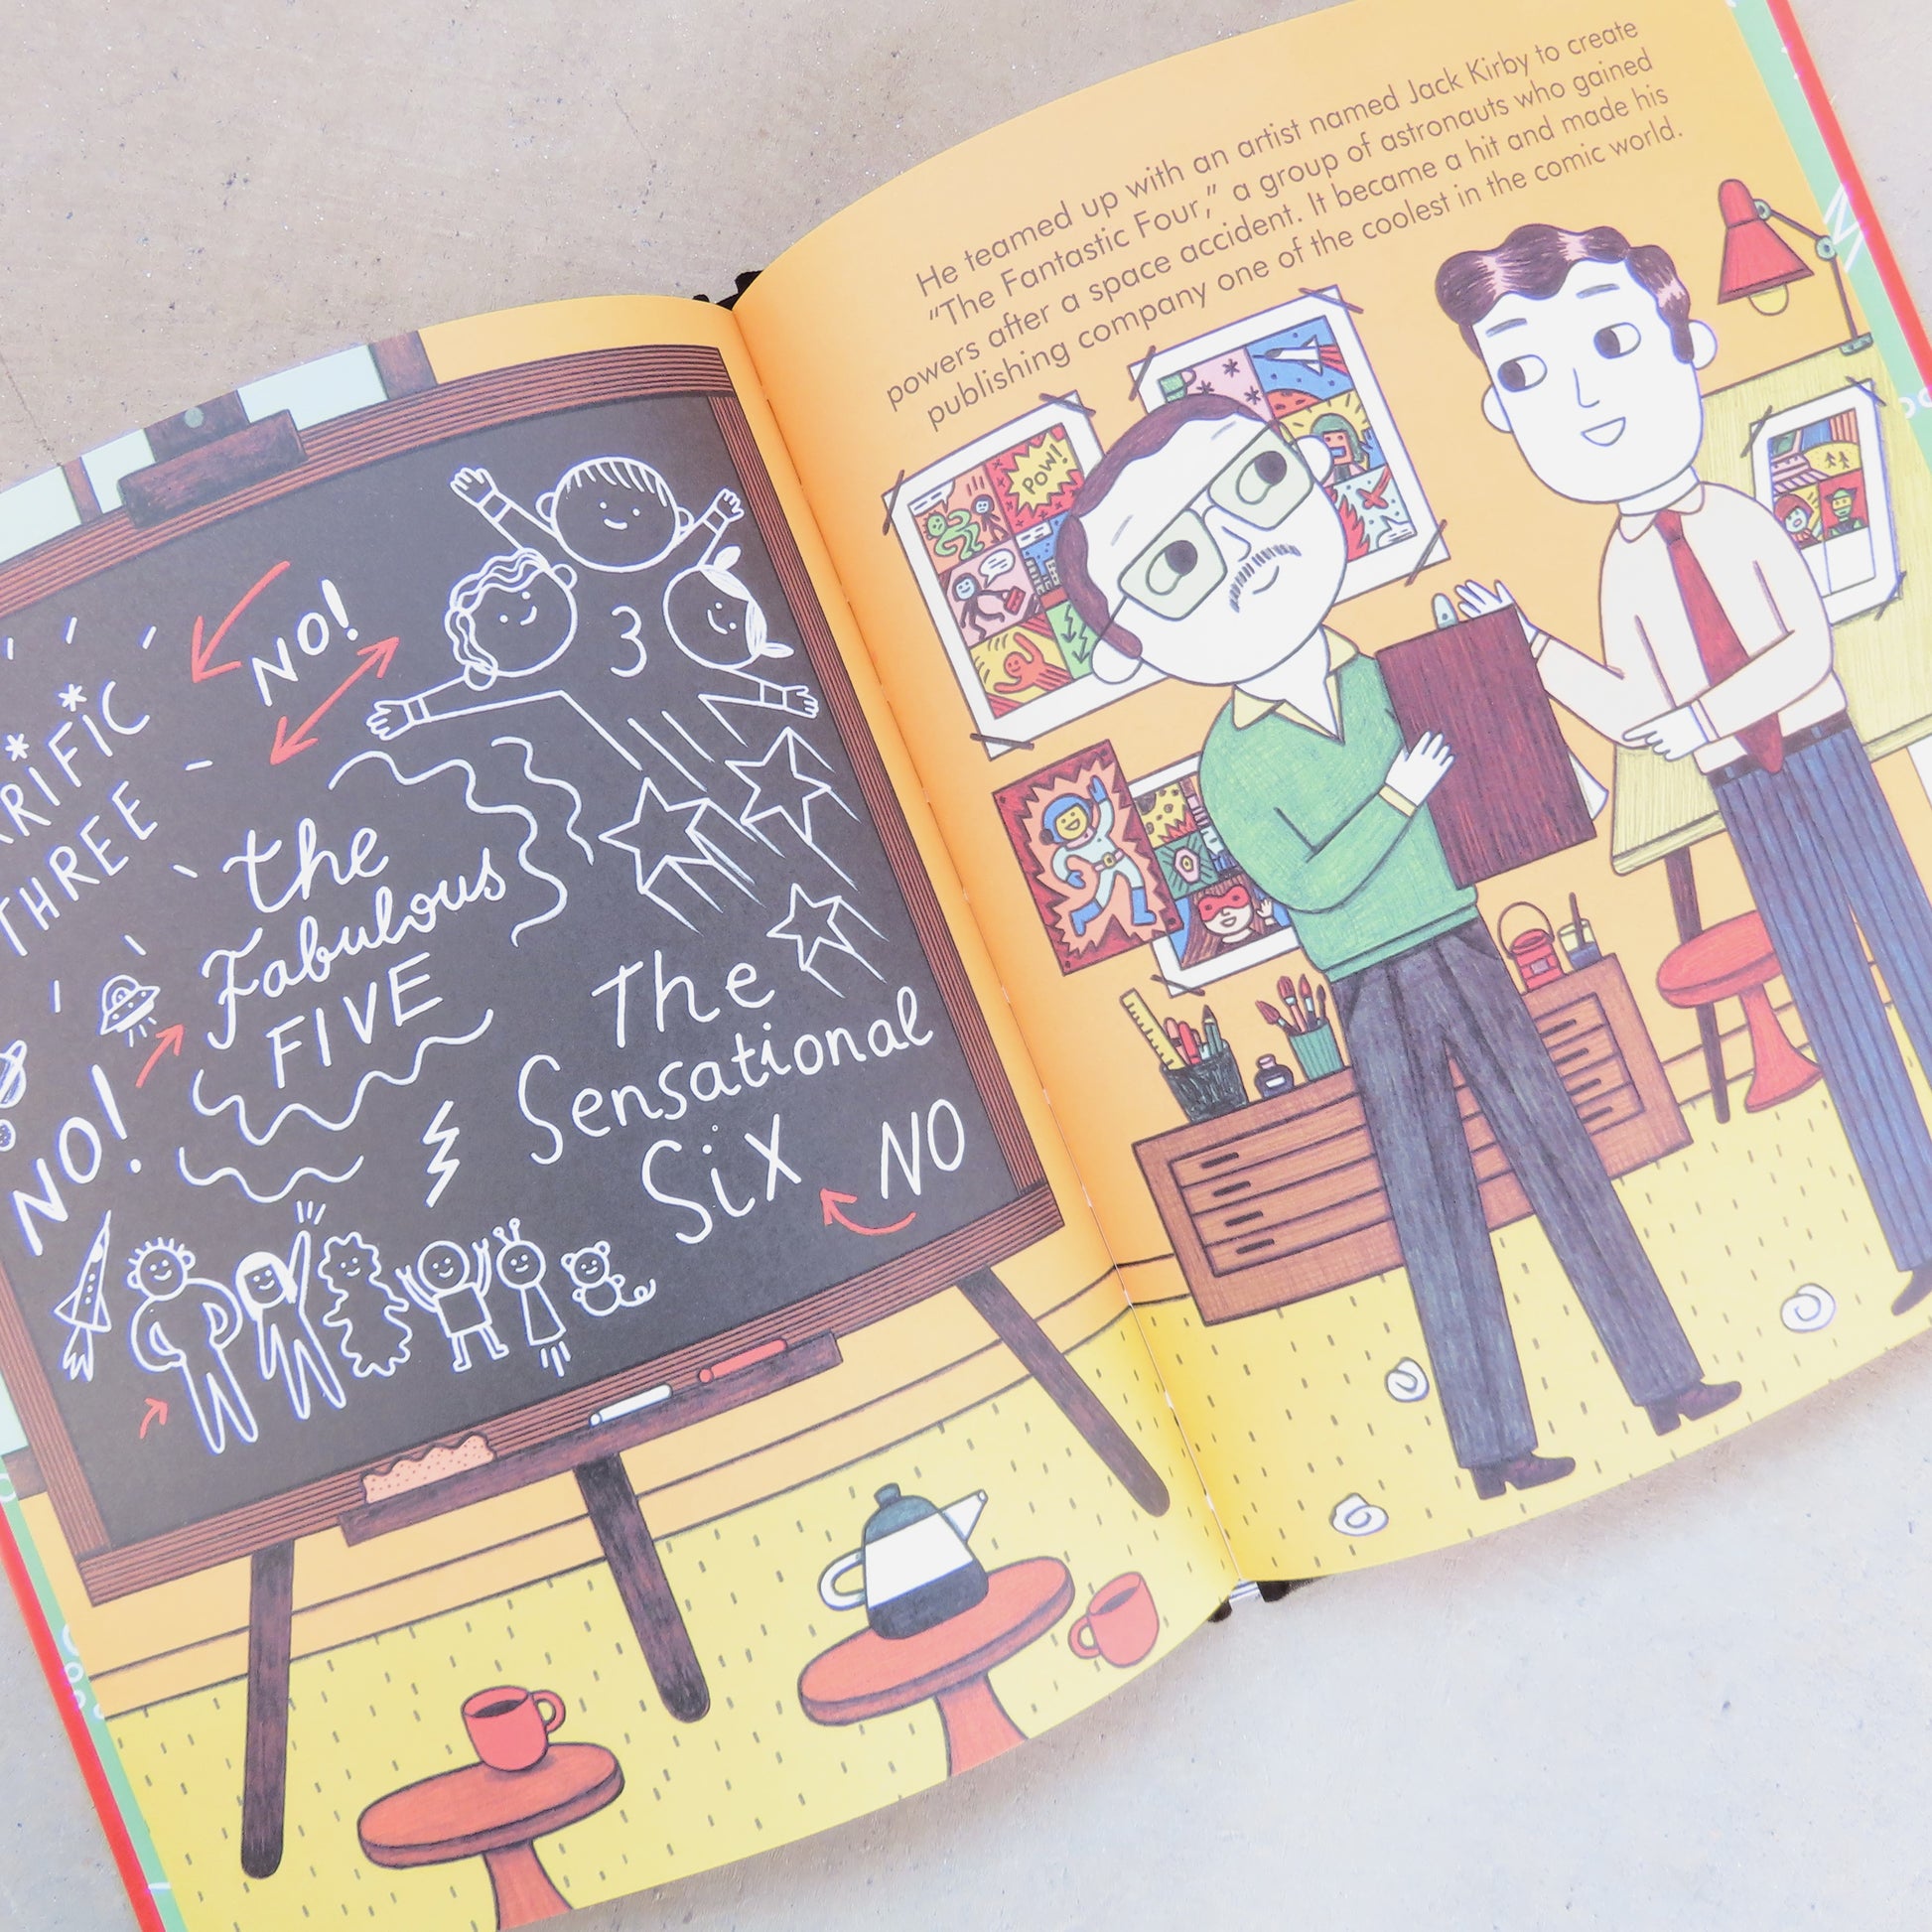 NO!
3
THREE
the
Fabulous
FIVE
NO!
The
Sensational
Six
NO
He teamed up with an artist named Jack Kirby to create
“The Fantastic Four,” a group of astronauts who gained
powers after a space accident. It became a hit and made his
publishing company one of the coolest in the comic world.
POW!